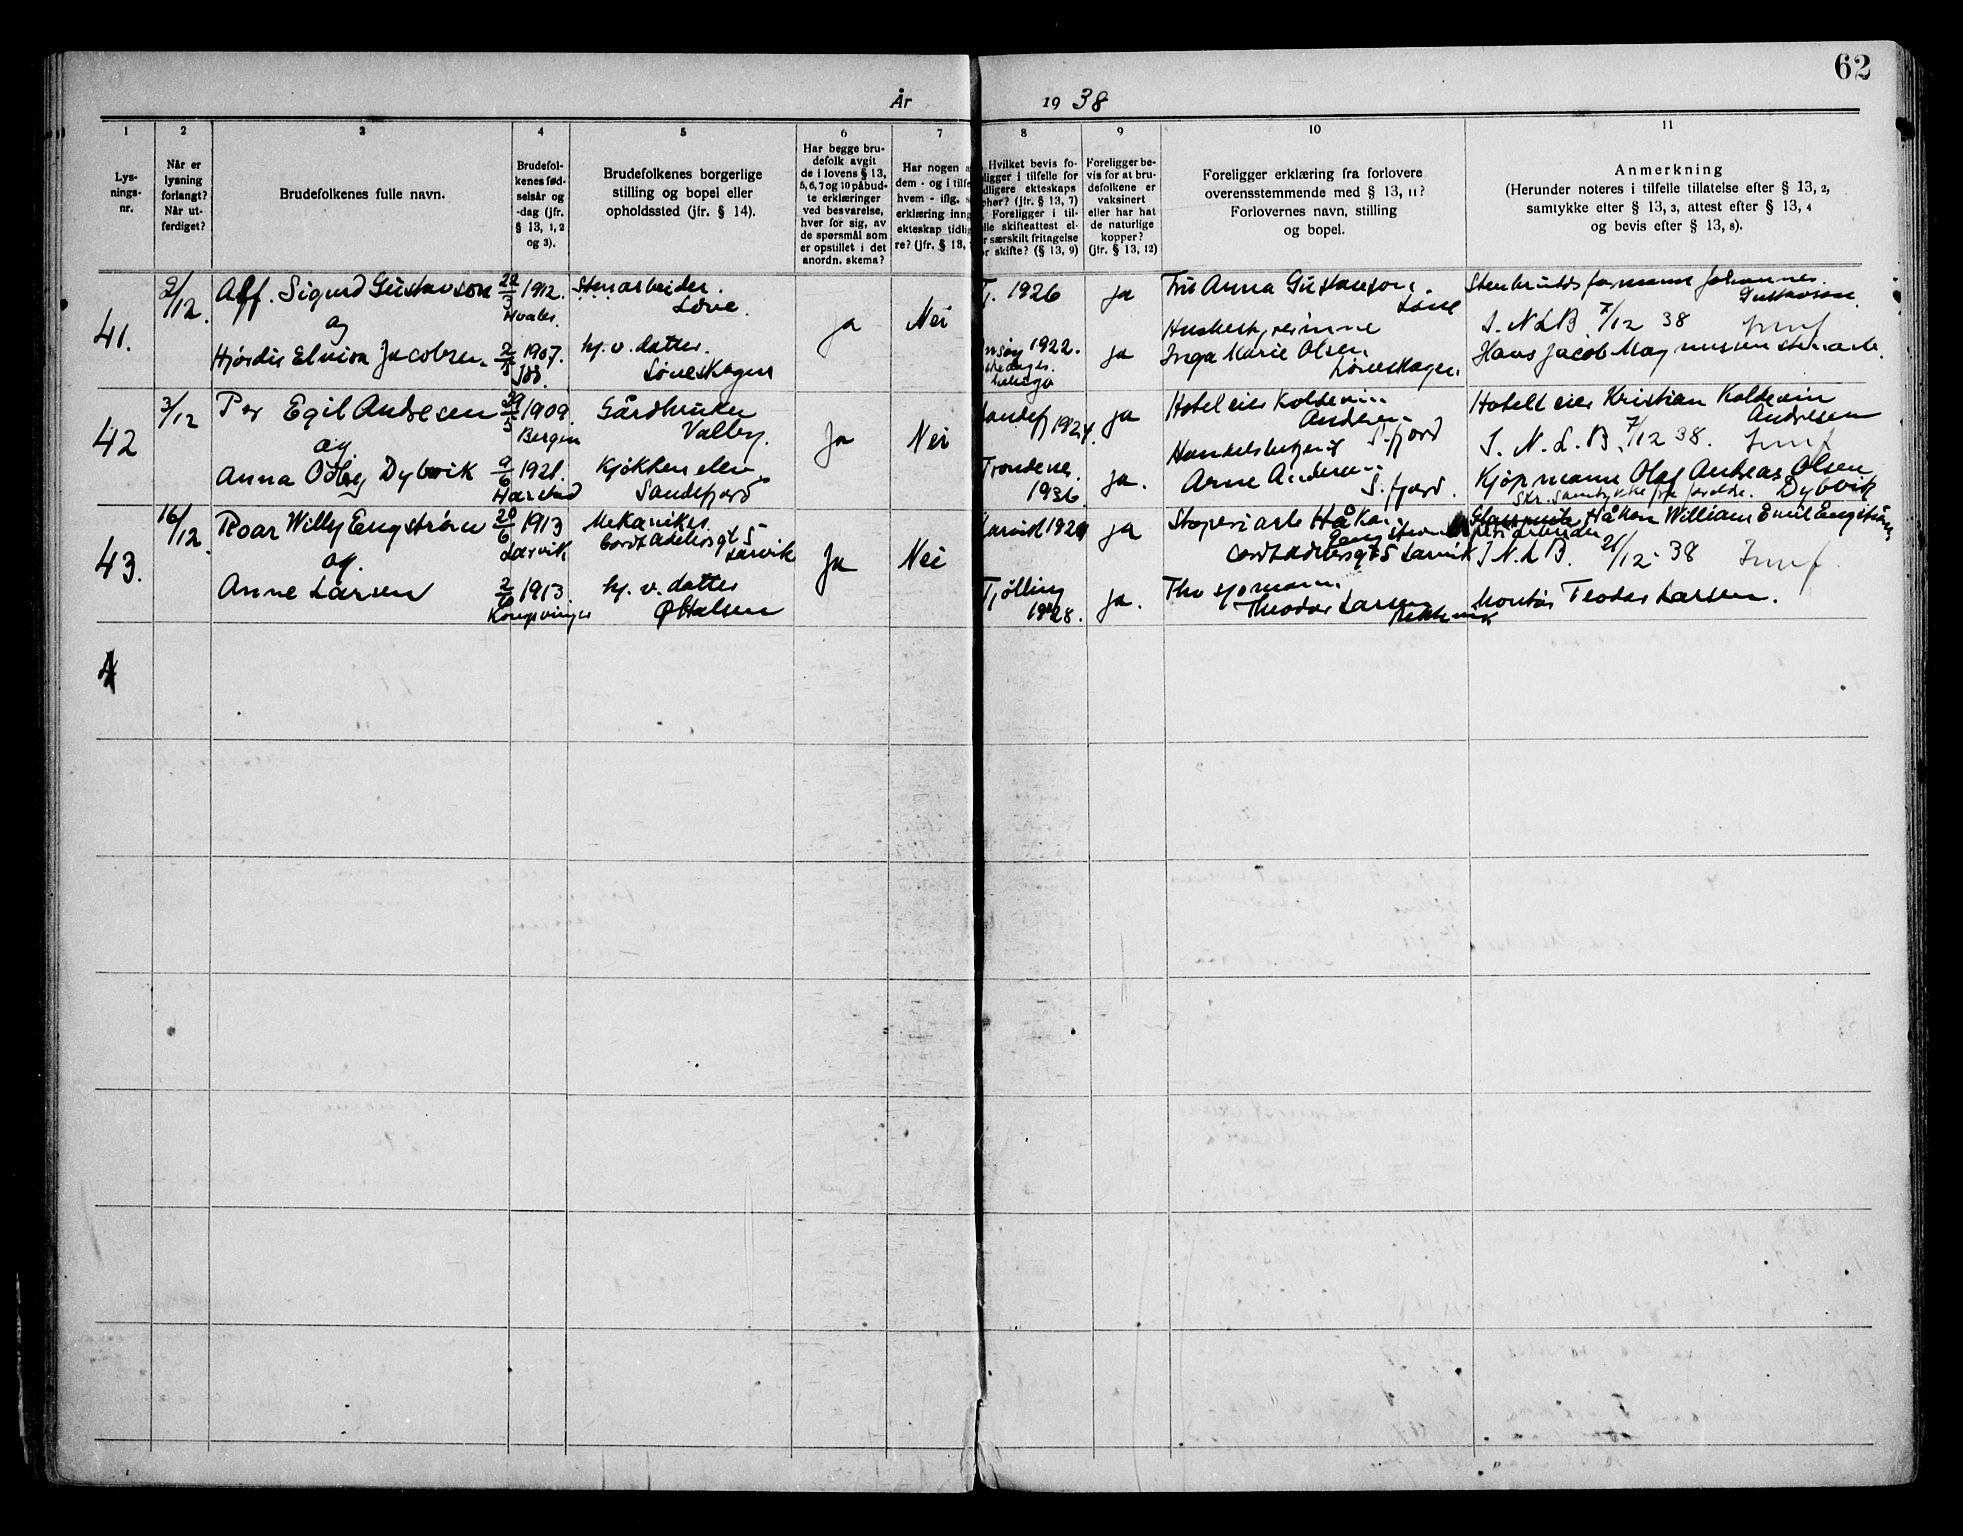 62
År 19 38
1 2 3 4 5 6 7 8 9 10 11
Lys-
nings-
nr.
Når er
lysning
forlangt?
Når ut-
ferdiget?
Brudefolkenes fulle navn.
Brudefol-
kenes fød-
selsår og
-dag (jfr.
§ 13, 1, 2
og 3).
Brudefolkenes borgerlige
stilling og bopel eller
opholdssted (jfr. § 14).
Har begge bru-
defolk avgit
de i lovens § 13,
5, 6, 7 og 10 påbud-
te erklæringer
ved besvarelse,
hver for sig, av
de spørsmål som
er opstillet i det
anordn. skema?
Har nogen a
dem - og i tilfe
hvem - iflg. s
erklæring inng
ekteskap tidlig
re? (jfr. § 13,
Hvilket bevis fo-
ligger i tilfelle for
dligere ekteskaps
phør? (jfr. § 13, 7)
Foreligger i til-
lle skifteattest el-
r særskilt fritagelse
or skifte? (§ 13, 9)
Foreligger be-
vis for at bru-
defolkene er
vaksinert
eller har hat
de naturlige
kopper?
(jfr. § 13, 12)
Foreligger erklæring fra forlovere
overensstemmende med § 13, 11?
Forlovernes navn, stilling
og bopel.
Anmerkning
(Herunder noteres i tilfelle tillatelse efter § 13, 2,
samtykke efter § 13, 3, attest efter § 13, 4
og bevis efter § 13, 8).
41.
2/12.
Alf. Sigurd Gustavson
og
Hjørdis Elvira Jacobsen.
1912.
Hvaler.
1907.
Stenarbeider.
Løve.
hj. v. datter.
Løveskogen
ja
Nei
T. 1926
1922.
ja
ja
Fru Anna Gustavson.
Løve
Inga Marie Olsen
Løveskogen.
Stenbruddsformann Johannes
Gustavson.
I. N L B 7/12 38
Hans Jacob Magnussen stenarb.
42
3/12
Per Egil Andresen
og
Anna Odbny Dybvik
1909
Bergen
9/6 1921.
Harstad
Gårdbruker
Valby.
Kjøkken elev
Sandefjord
Ja
Nei
andef 1924.
Trondenes
1936
ja
ja.
Hoteleier Koldevin
Andresen
S.fjord
Arne Andresen
S.fjord.
Hotelleier Kristian Koldevin
Andresen
I. N. L. B. 7/12 38.
Kjøpmann Olaf Andreas Olsen
Skr. samtykke fra foreldre. Dybvik
43.
16/12.
Roar Willy Engstrøm
og.
Anne Larsen
20/6 1913
Larvik
1913
Kongsvinger
Mekaniker
Cort Adelersgt 5
Larvik
hj. v. datter
Ø Halsen
Ja
Nei
Larvik 1929
Tjølling
1928.
ja
ja.
Støperiarb Håkon
Engstrøm
Cort Adelersgt 5 Larvik
Theodor Larsen
Håkon William Emil Engstrøm
I N L B. 21/12 - 38
Montør Teodor Larsen.
4